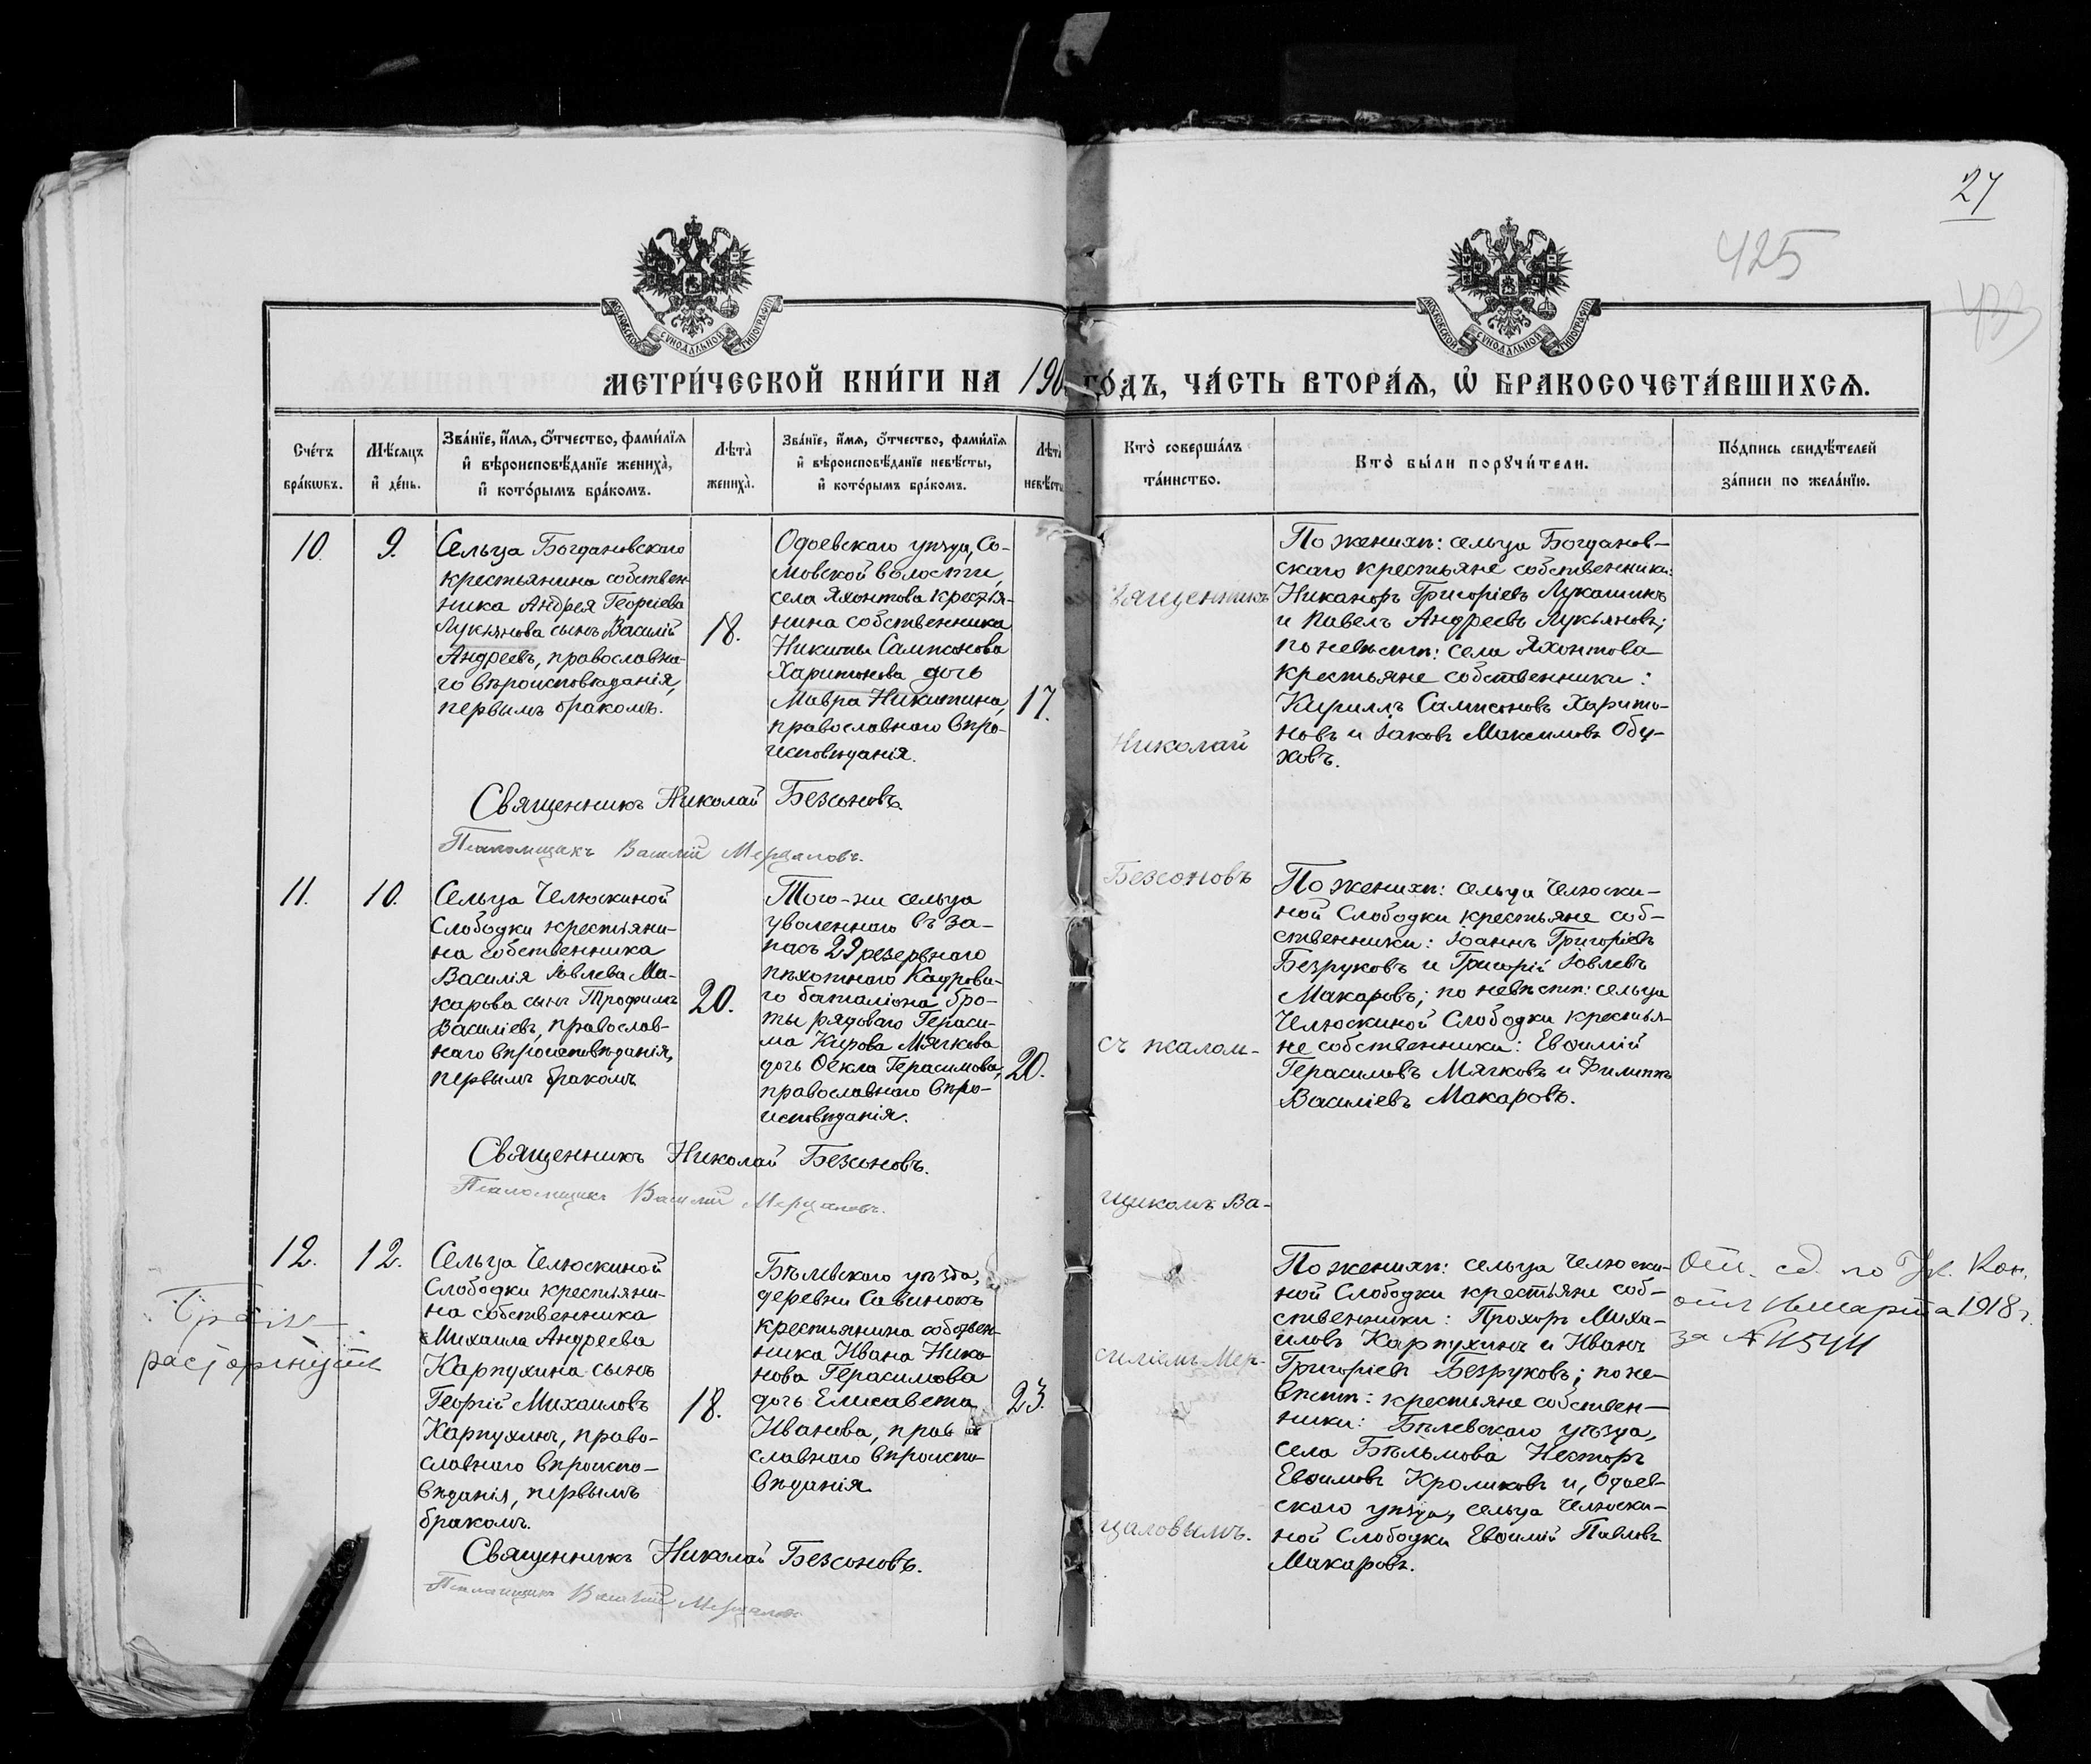 27
425
МОСКОВСКОЙ СѴНОДАЛЬНОЙ ТИПОГРАФІИ
МОСКОВСКОЙ СѴНОДАЛЬНОЙ ТИПОГРАФІИ
МЕТРИ́ЧЕСКОЙ КНИ́ГИ НА 190 ГО́ДЪ, ЧА́СТЬ ВТОРА́Ѧ, Ѡ҆ БРАКОСОЧЕТА́ВШИХСѦ.
Сче́тъ
бра́кѡвъ.
Мѣ́сѧцъ
и҆ де́нь.
Зва́нїе, и҆́мѧ, ѻ҆́тчество, фами́лїѧ
и҆ вѣроисповѣ́данїе жениха̀,
и҆ кото́рымъ бра́комъ.
Лѣта̀
жениха̀.
Зва́нїе, и҆́мѧ, ѻ҆́тчество, фами́лїѧ
и҆ вѣроисповѣ́данїе невѣ́сты,
и҆ кото́рымъ бра́комъ.
Лѣта̀
невѣ́сты
Кто̀ соверша́лъ
та́инство.
Кто̀ бы́ли порꙋчи́тели.
По́дпись свидѣ́телей
за́писи по жела́нїю.
10.
9.
Сельца Богдановскаго
крестьянина собствен
ника Андрея Георгіева
Лукьянова сынъ Василій
Андреевъ, православна-
го вѣроисповѣданія,
первымъ бракомъ.
18.
Одоевскаго уѣзда, Со-
мовской волости,
села Яхонтова крестья-
нина собственника
Никиты Сампсонова
Харитонова дочь
Мавра Никитина,
православнаго вѣро-
исповѣданія.
17.
Священникъ
Николай
По женихѣ: сельца Богданов-
скаго крестьяне собственники:
Никаноръ Григоріевъ Лукашинъ
и Павелъ Андреевъ Лукьяновъ;
по невѣстѣ: села Яхонтова
крестьяне собственники:
Кириллъ Сампсоновъ Харито-
новъ и Іаковъ Максимовъ Обу-
ховъ.
Священникъ Николай Безсоновъ
Псаломщикъ Василій Мерцаловъ.
11.
10.
Сельца Челюскиной
Слободки крестьяни-
на собственника
Василія Іовлева Ма-
карова сынъ Трофимъ
Василіевъ, православ-
наго вѣроисповѣданія,
первымъ бракомъ
20.
Того-же сельца
уволеннаго въ за-
пасъ 29 резервнаго
пѣхотнаго Кадрова-
го баталіона, ро-
ты рядоваго Гераси-
ма Кирова Мягкова
дочь Ѳекла Герасимова,
православнаго вѣро-
исповѣданія.
20.
Безсоновъ
съ псалом-
По женихѣ: сельца Челюски-
ной Слободки крестьяне соб-
ственники: Іоаннъ Григоріевъ
Безруковъ и Григорій Іовлевъ
Макаровъ; по невѣстѣ: сельца
Челюскиной Слободки крестья-
не собственники: Евѳимій
Герасимовъ Мягковъ и Филиппъ
Василіевъ Макаровъ.
Священникъ Николай Безсоновъ.
Псаломщикъ Василій Мерцаловъ.
щикомъ Ва-
12.
12.
Бракъ
расторгнутъ
Сельца Челюскиной
Слободки крестьяни-
на собственника
Михаила Андреева
Карпухина сынъ
Георгій Михаиловъ
Карпухинъ, право-
славнаго вѣроиспо-
вѣданія, первымъ
бракомъ.
18.
Бѣлевскаго уѣзда,
деревни Савинокъ
крестьянина собствен-
ника Ивана Нико-
нова Герасимова
дочь Елисавета
Иванова, право
славнаго вѣроиспо-
вѣданія
23.
силіемъ Мер-
цаловымъ.
По женихѣ: сельца Челюски-
ной Слободки крестьяне соб-
ственники: Прохоръ Миха-
иловъ Карпухинъ и Иванъ
Григоріевъ Безруковъ; по не-
вѣстѣ: крестьяне собствен-
ники: Бѣлевскаго уѣзда,
села Бѣльмова Несторъ
Евѳимовъ Кроликовъ и, Одоев-
скаго уѣзда, сельца Челюски-
ной Слободки Евѳимій Павловъ
Макаровъ.
сд. по Ук. Кон.
отъ марта 1918 г.
за №
Священникъ Николай Безсоновъ.
Псаломщикъ Василій Мерцаловъ